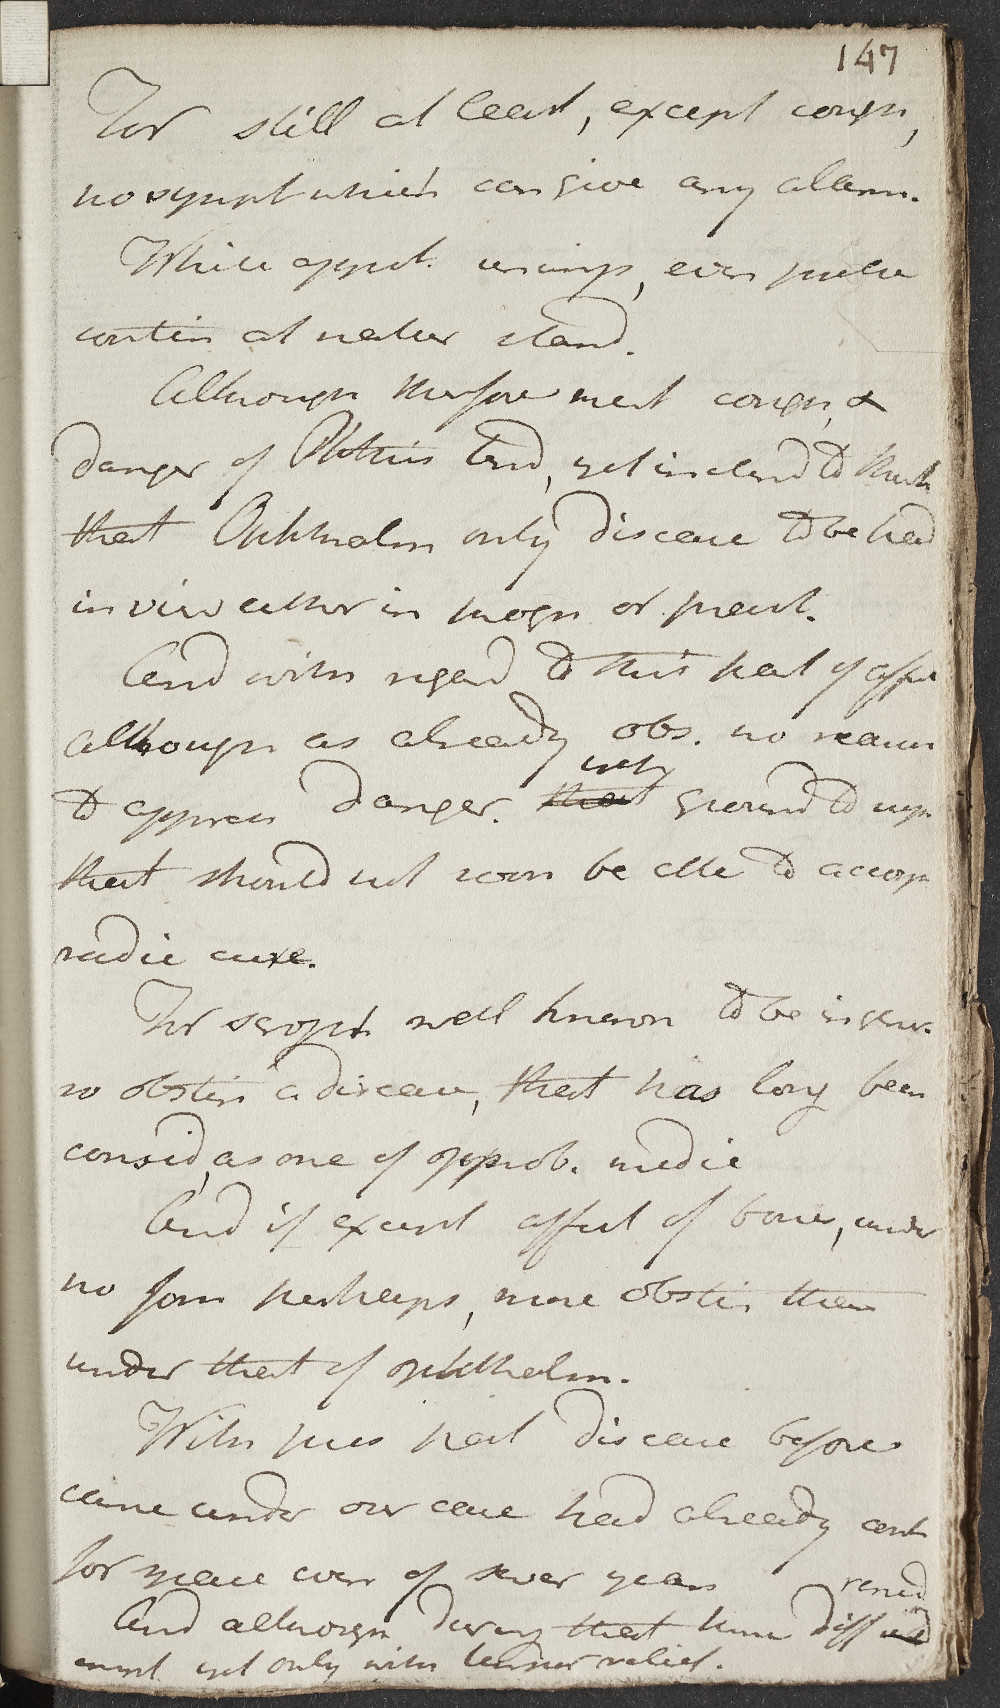 147
For still at least, except cough,
no sympt which can give any alarm.
While appet. unimp, even pulse
contin at natur stand.
Although therefore meet cough, &
danger of Phthisis tend, yet inclend to think
that Ophthalm only disease to be had
in view either in progn or pract.
And with regard to this part of affect
although as already obs. no reason
to appreh danger. why ground to
that should not soon be able to accomp
radic cure.
For scroph well known to be in gener.
so obstin a disease, that has long been
consid, as one of opprob. medic
And if except affect of bones, under
no form perhaps, more obstin than
under that of ophthalm.
With pres pat disease before
came under our care had already cont
for space even of sever years
And although during that time diff remed
empl yet only with tempor relief.